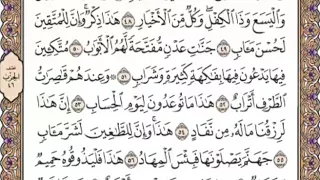 وَٱلْيَسَعَ وَذَا ٱلْكِفْلِ وَكُلٌّ مِّنَ ٱلْأَخْيَارِ ٤٨ هَٰذَا ذِكْرٌ وَإِنَّ لِلْمُتَّقِينَ
لَحُسْنَ مَـَٔابٍ ٤٩ جَنَّٰتِ عَدْنٍ مُّفَتَّحَةً لَّهُمُ ٱلْأَبْوَٰبُ ٥٠ مُتَّكِـِٔينَ
فِيهَا يَدْعُونَ فِيهَا بِفَٰكِهَةٍ كَثِيرَةٍ وَشَرَابٍ ٥١ وَعِندَهُمْ قَٰصِرَٰتُ
ٱلطَّرْفِ أَتْرَابٌ ٥٢ هَٰذَا مَا تُوعَدُونَ لِيَوْمِ ٱلْحِسَابِ ٥٣ إِنَّ هَٰذَا
لَرِزْقُنَا مَا لَهُۥ مِن نَّفَادٍ ٥٤ هَٰذَا وَإِنَّ لِلطَّٰغِينَ لَشَرَّ مَـَٔابٍ
٥٥ جَهَنَّمَ يَصْلَوْنَهَا فَبِئْسَ ٱلْمِهَادُ ٥٦ هَٰذَا فَلْيَذُوقُوهُ حَمِيمٌ